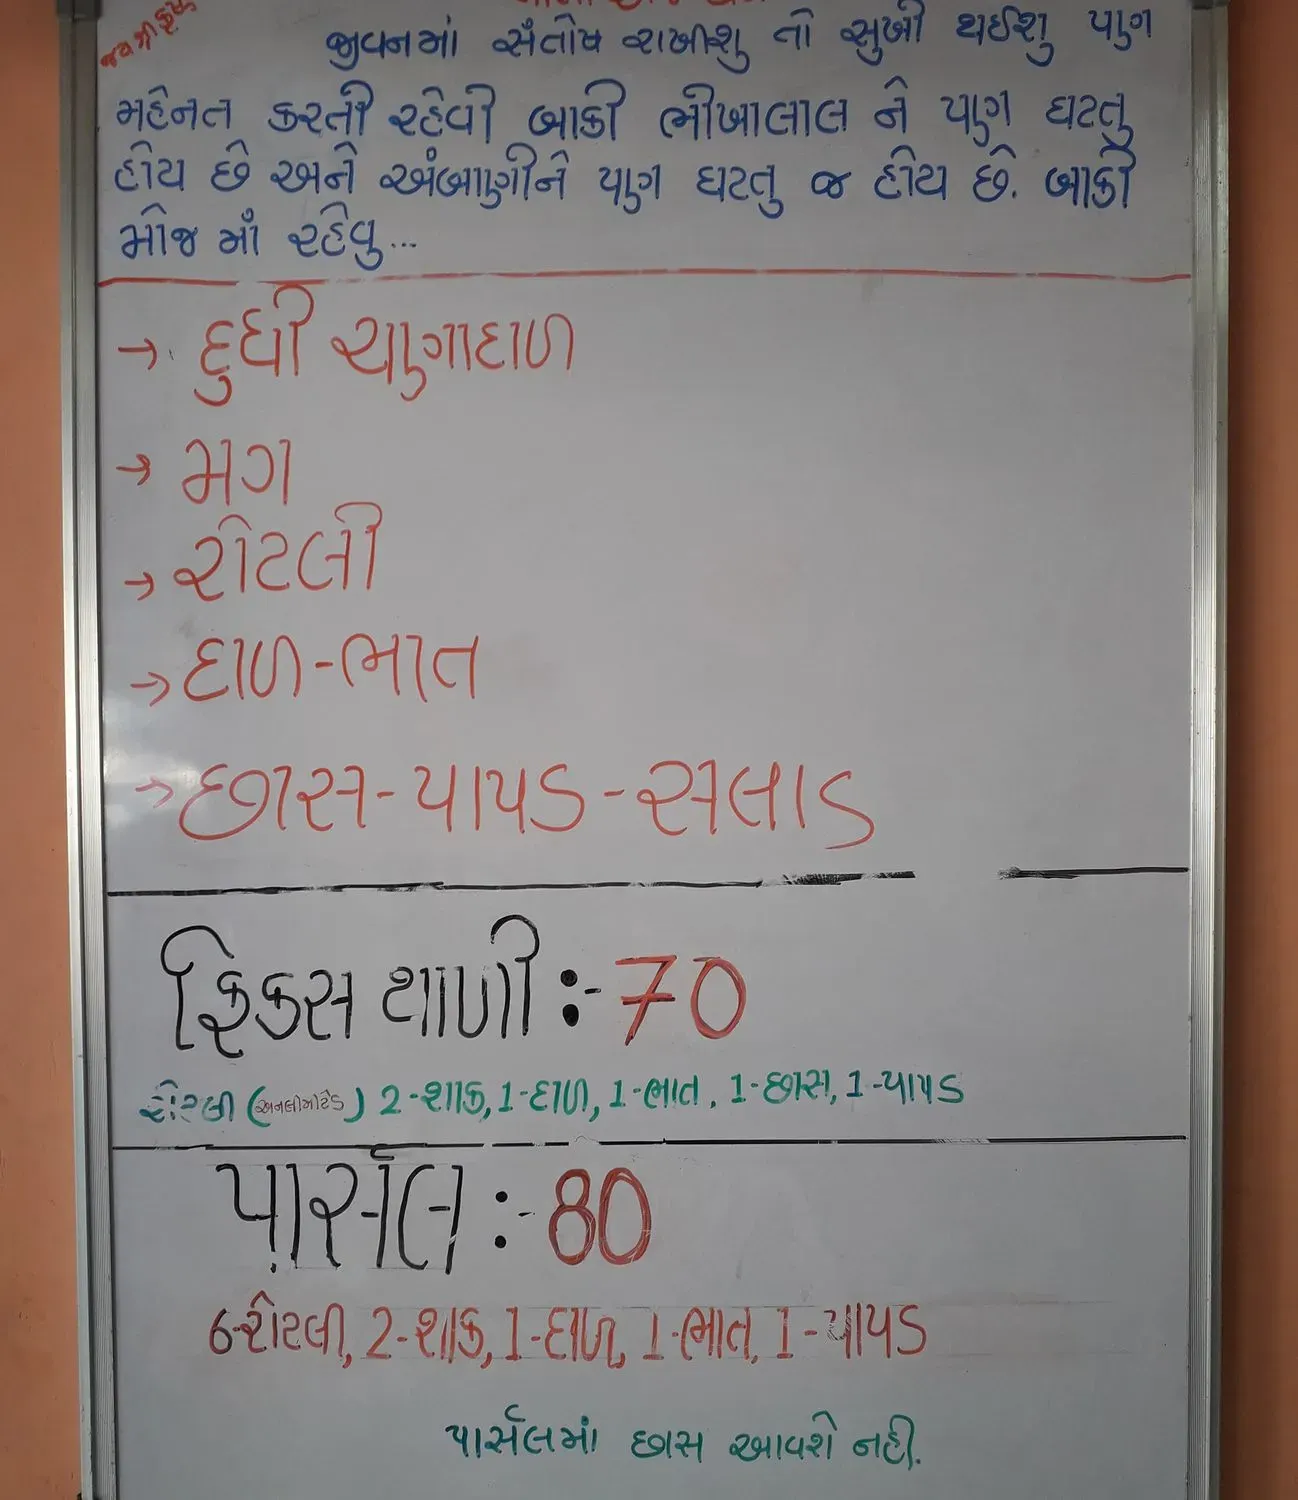 જય શ્રી કૃષ્ણ
જીવનમાં સંતોષ રાખીશુ તો સુખી થઈશુ પણ
મહેનત કરતી રહેવી બાકી ભીખાલાલ ને પણ ઘટતુ
હોય છે અને અંબાણીને પણ ઘટતુ જ હોય છે. બાકી
મોજ માં રહેવુ...
→ દુધી ચણાદાળ
→ મગ
→ રોટલી
→ દાળ-ભાત
→ છાસ-પાપડ-સલાડ
ફિકસ થાળી :- 70
રોટલી (અનલીમીટેડ) 2-શાક, 1-દાળ, 1-ભાત, 1-છાસ, 1-પાપડ
પાર્સલ :- 80
6-રોટલી, 2-શાક, 1-દાળ, 1-ભાત, 1-પાપડ
પાર્સલમાં છાસ આવશે નહી.